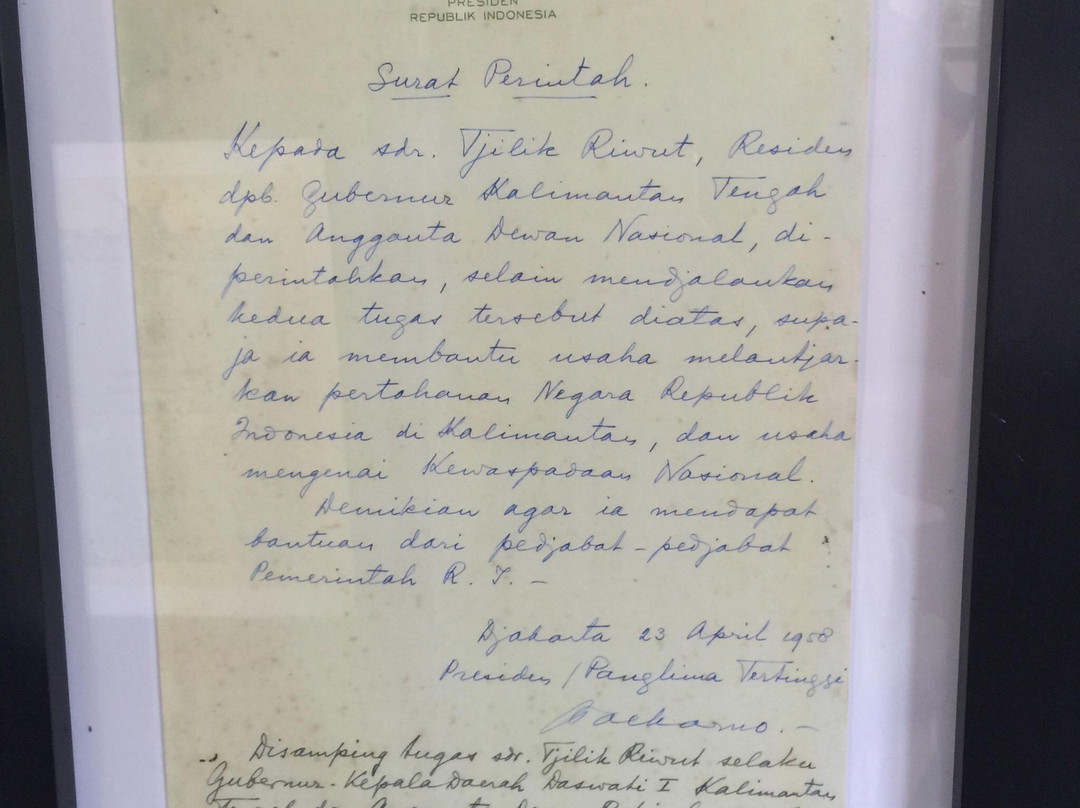 PRESIDEN
REPUBLIK INDONESIA
Surat Perintah.
Kepada sdr. Tjilik Riwut, Residen
dpb. Gubernur Kalimantan Tengah
dan Anggauta Dewan Nasional, di-
perintahkan, selain mendjalankan
kedua tugas tersebut diatas, supa-
ja ia membantu usaha melantjar-
kan pertahanan Negara Republik
Indonesia di Kalimantan, dan usaha
mengenai Kewaspadaan Nasional.
Demikian agar ia mendapat
bantuan dari pedjabat-pedjabat
Pemerintah R. I. -
Djakarta 23 April 1958
Presiden / Panglima Tertinggi
Soekarno. -
Disamping tugas sdr. Tjilik Riwut selaku
Gubernur-Kepala Daerah Daswati I Kalimantan